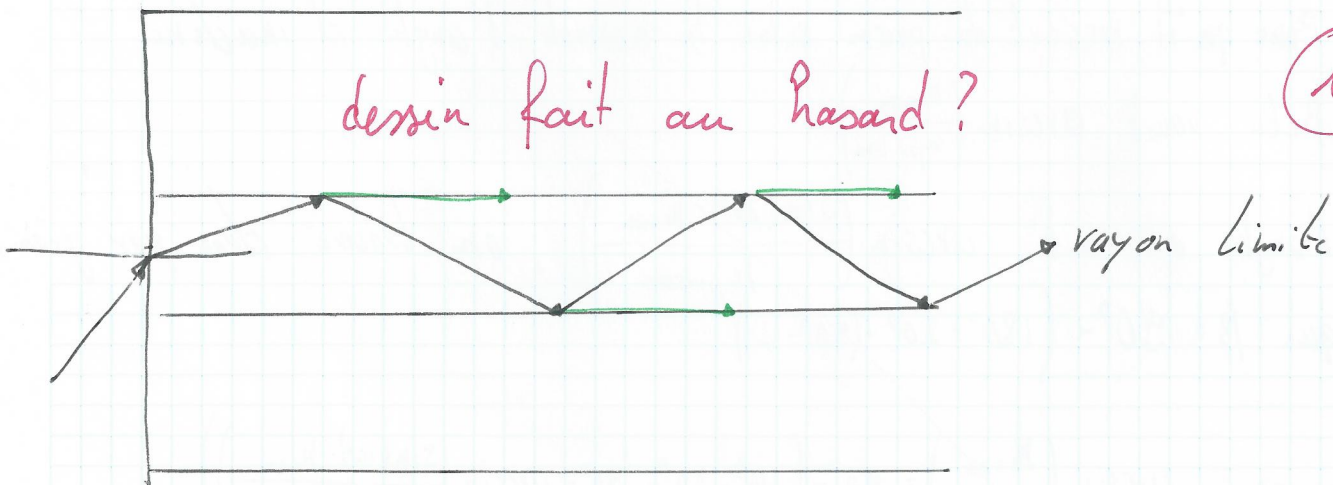 dessin fait au hasard ?
rayon limite